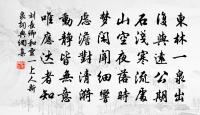 東林一泉出
復與遠公期
石淺寒流處
山空夜落時
夢閑聞細響
慮澹對清漪
動靜皆無意
唯應達者知
劉長卿和靈一上人新
泉詞典網集